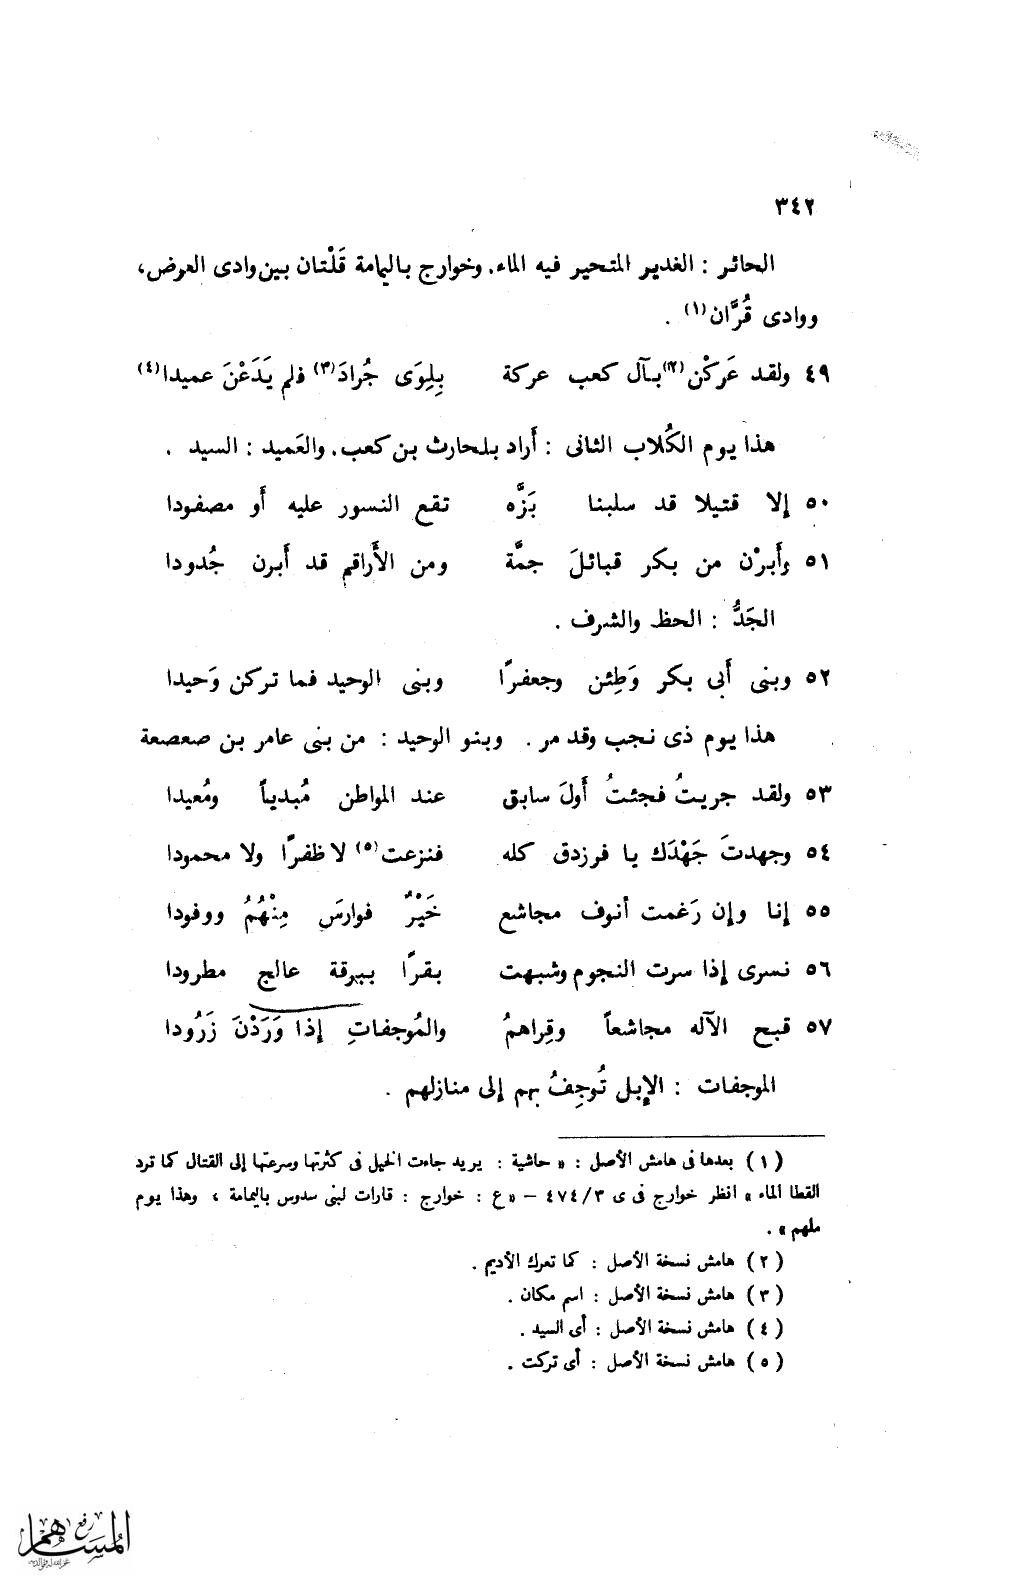 ٣٤٢
الحائر : الغدير المتحير فيه الماء. وخوارج باليمامة قَلْتان بين وادى العرض،
ووادى قُرَّان(١) .
٤٩ ولقد عَركْن(٢) بآل كعب عركة بِلِوَى جُرادَ(٣) فلم يَدَعْنَ عميدا(٤)
هذا يوم الكُلاب الثانى : أَراد بلحارث بن كعب. والعَميد : السيد .
٥٠ إلا قتيلا قد سلبنا بَزَّه تقع النسور عليه أَو مصفودا
٥١ وأَبرْن من بكر قبائلَ جمَّة ومن الأَراقم قد أَبرن جُدودا
الجَدُّ : الحظ والشرف .
٥٢ وبنى أَبى بكر وَطِئن وجعفرًا وبنى الوحيد فما تركن وَحيدا
هذا يوم ذى نجب وقد مر . وبنو الوحيد : من بنى عامر بن صعصعة
٥٣ ولقد جريتُ فجئتُ أَولَ سابق عند المواطن مُبدياً ومُعيدا
٥٤ وجهدتَ جَهْدَك يا فرزدق كله فنزعت(٥) لا ظفرًا ولا محمودا
٥٥ إنا وإن رَغمت أنوف مجاشع خَيْرٌ فوارسَ مِنْهُمُ ووفودا
٥٦ نسرى إذا سرت النجوم وشبهت بقرًا ببرقة عالج مطرودا
٥٧ قبح الآله مجاشعاً وقِراهمُ والمُوجفاتِ إذا وَرَدْنَ زَرُودا
الموجفات : الإبل تُوجِفُ بهم إلى منازلهم .
(١) بعدها فى هامش الأصل : « حاشية : يريد جاءت الخيل فى كثرتها وسرعتها إلى القتال كما ترد
القطا الماء » انظر خوارج فى ى ٤٧٤/٣ – « ع : خوارج : قارات لبنى سدوس باليمامة ، وهذا يوم
ملهم » .
(٢) هامش نسخة الأصل : كما تعرك الأديم .
(٣) هامش نسخة الأصل : اسم مكان .
(٤) هامش نسخة الأصل : أى السيد .
(٥) هامش نسخة الأصل : أى تركت .
رفع
المساهم